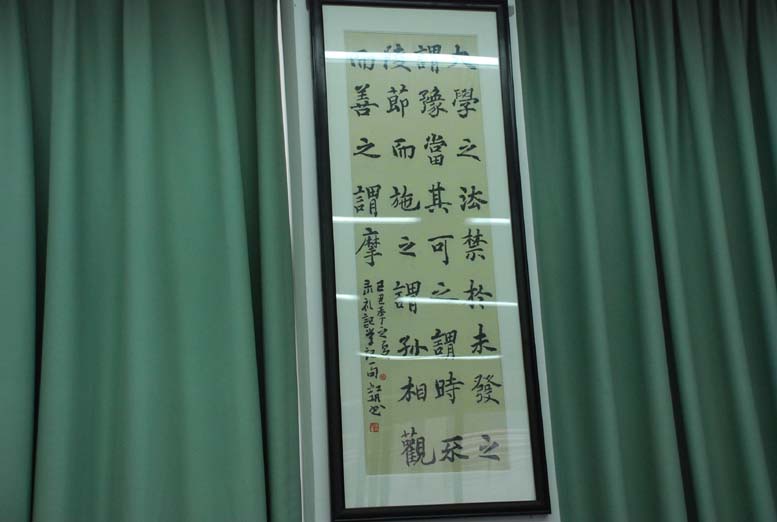 大學之法禁於未發之
謂豫當其可之謂時不
陵節而施之謂孫相觀
而善之謂摩
己丑季之
录礼記學記一句 书